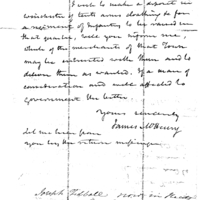 I wish to make a deposit in
Winchester of tents arms cloathing &c for
a regiment of Infantry to be raised in
that quarter, will you inform me,
which of the merchants of that Town
may be entrusted with them and to
deliver them as wanted. If a man of
and well affected to
Government the better.
Yours sincerely
James McHenry
Let me hear from
you by the return
Joseph Tidball